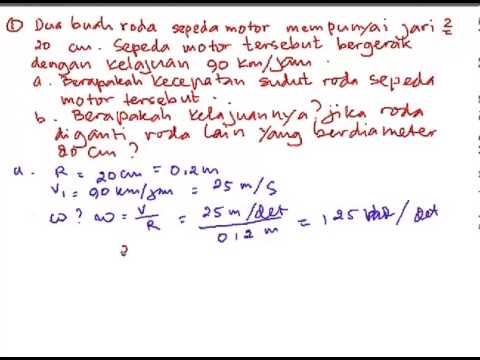 ① Dua buah roda sepeda motor mempunyai jari2
20 cm. Sepeda motor tersebut bergerak
dengan kelajuan 90 km/jam.
a. Berapakah kecepatan sudut roda sepeda
motor tersebut.
b. Berapakah kelajuannya? jika roda
diganti roda lain yang berdiameter
80 cm?
a. R = 20 cm = 0,2 m
V₁ = 90 km/jam = 25 m/s
ω? ω = V/R = 25 m/det / 0,2 m = 125 rad/det